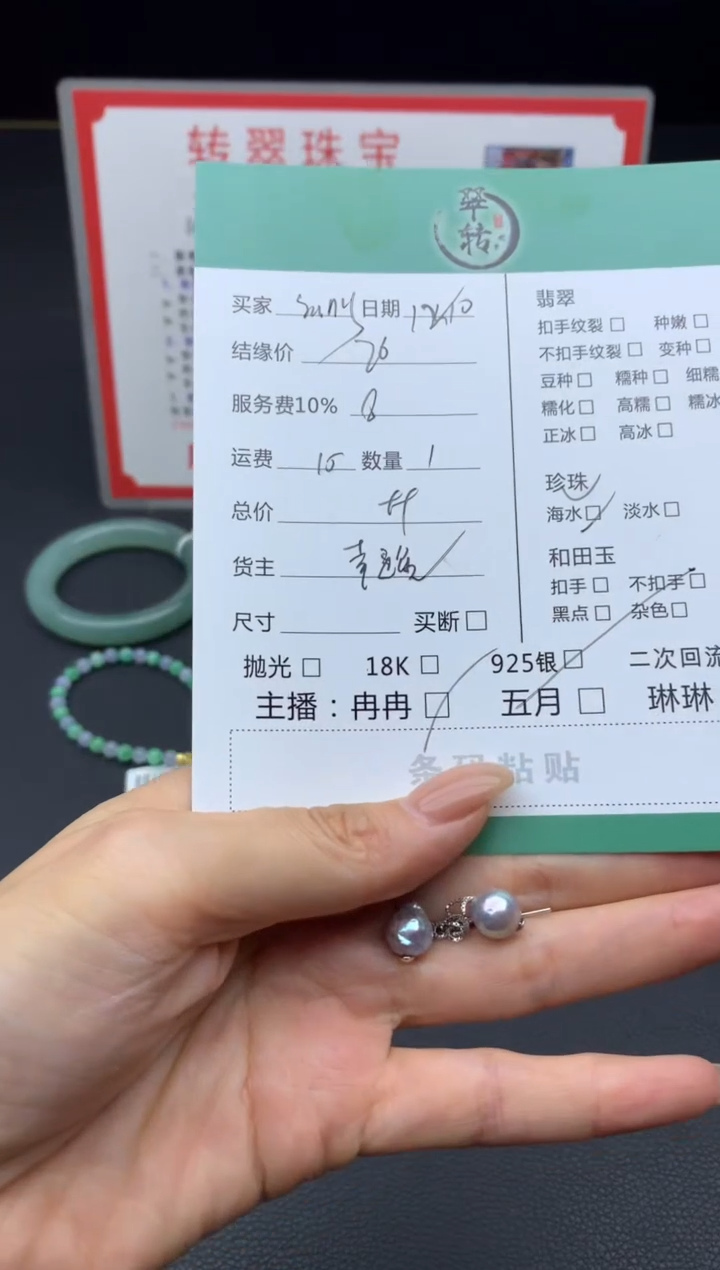 转翠珠宝
翠
转
买家 Suny 日期 12/10
结缘价 76
服务费10% 8
运费 15 数量 1
总价
货主
尺寸 买断 □
翡翠
扣手纹裂 □ 种嫩 □
不扣手纹裂 □ 变种 □
豆种 □ 糯种 □ 细糯
糯化 □ 高糯 □ 糯冰
正冰 □ 高冰 □
珍珠
海水 □ 淡水 □
和田玉
扣手 □ 不扣手 □
黑点 □ 杂色 □
抛光 □ 18K □ 925银 □ 二次回流
主播：冉冉 □ 五月 □ 琳琳
条码粘贴